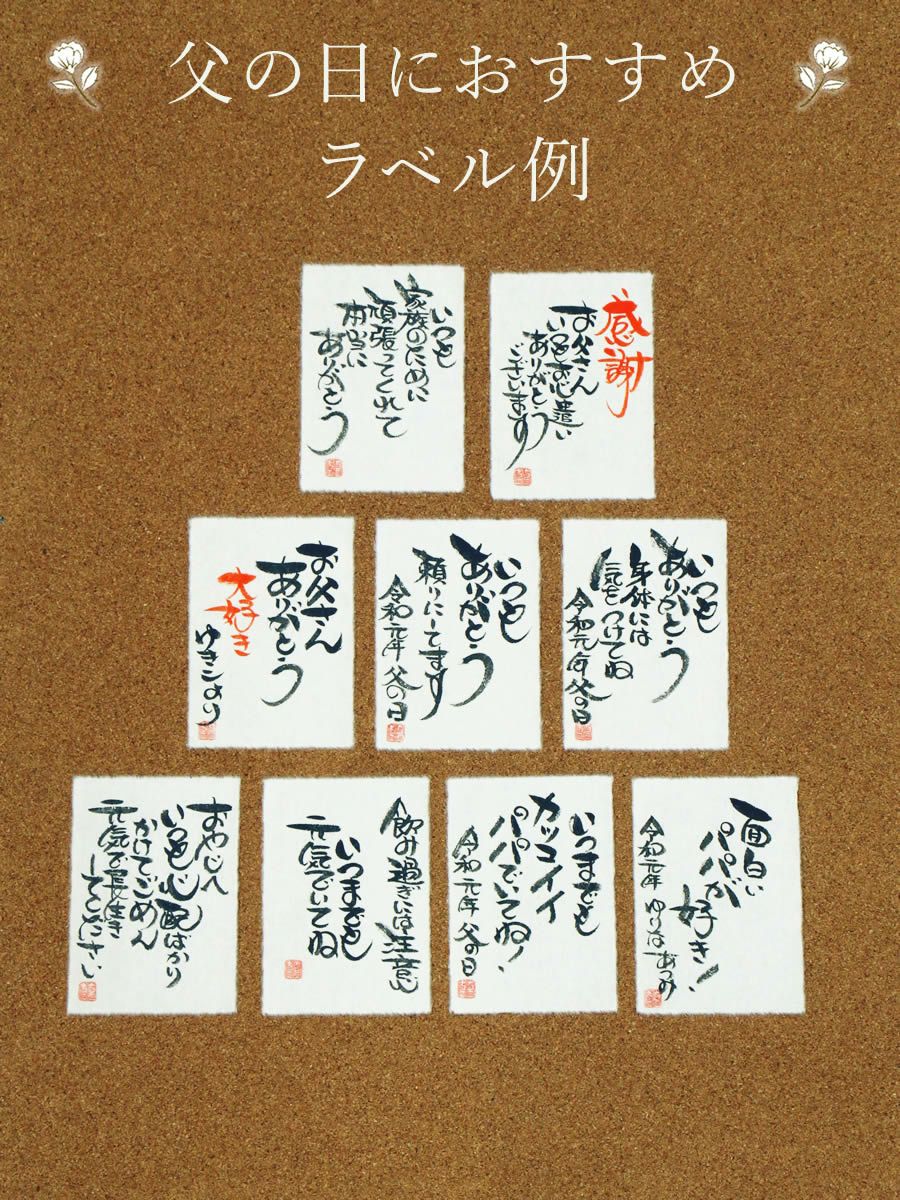 父の日におすすめ
ラベル例
いつも
家族のために
頑張ってくれて
本当に
ありがとう
感謝
お父さん
いつもお心遣い
ありがとう
ございます
お父さん
ありがとう
大好き
ゆきこより
いつも
ありがとう
頼りにしてます
令和元年 父の日
いつも
ありがとう
身体には
気をつけてね
令和元年父の日
おやじへ
いつも心配ばかり
かけてごめん
元気で長生き
してください
飲み過ぎには注意
いつまでも
元気でいてね
いつまでも
カッコイイ
パパでいてね!
令和元年父の日
面白い
パパが
好き!
令和元年 ゆりは あつみ